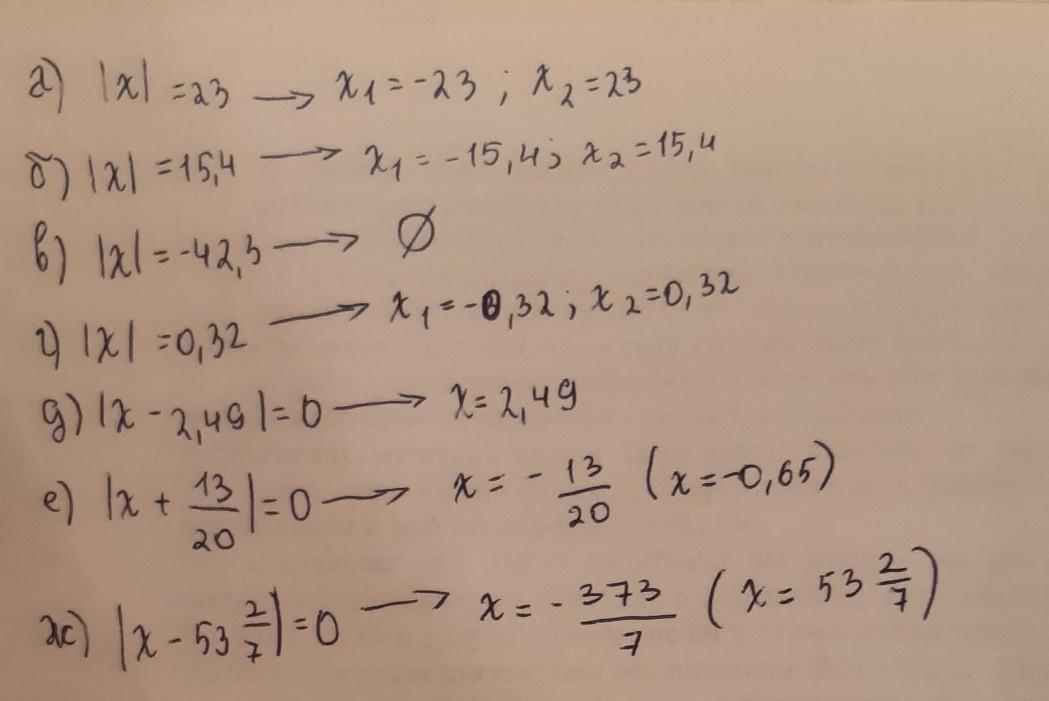 а) |x| = 23 → x₁ = -23 ; x₂ = 23
б) |x| = 15,4 → x₁ = -15,4; x₂ = 15,4
в) |x| = -42,3 → ∅
г) |x| = 0,32 → x₁ = -0,32 ; x₂ = 0,32
д) |x - 2,49| = 0 → x = 2,49
е) |x + 13/20| = 0 → x = - 13/20 (x = -0,65)
ж) |x - 53 2/7| = 0 → x = - 373/7 (x = 53 2/7)